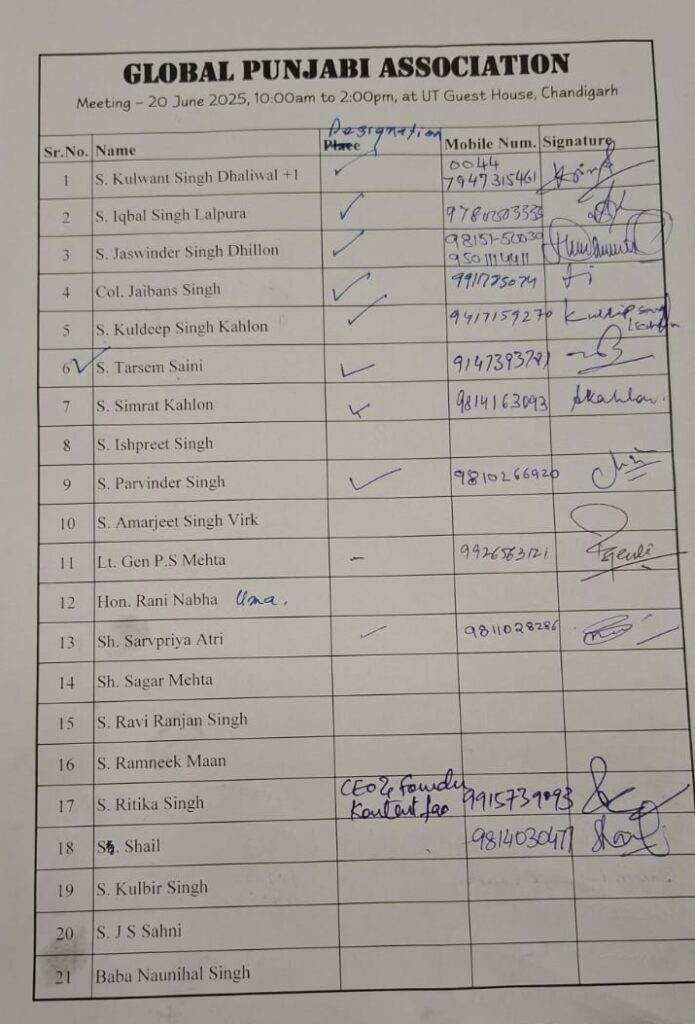 GLOBAL PUNJABI ASSOCIATION
Meeting – 20 June 2025, 10:00am to 2:00pm, at UT Guest House, Chandigarh
Designation
Sr.No. Name Place Mobile Num. Signature
1 S. Kulwant Singh Dhaliwal +1 ✓ 0044
7947315461
2 S. Iqbal Singh Lalpura ✓
3 S. Jaswinder Singh Dhillon ✓
4 Col. Jaibans Singh ✓
5 S. Kuldeep Singh Kahlon ✓ 9417159270 Kuldip Singh
Kahlon
6 ✓ S. Tarsem Saini ✓
7 S. Simrat Kahlon ✓ 9814163093 SKahlon.
8 S. Ishpreet Singh
9 S. Parvinder Singh ✓ 9810266920
10 S. Amarjeet Singh Virk
11 Lt. Gen P.S Mehta – 9926563121
12 Hon. Rani Nabha Uma.
13 Sh. Sarvpriya Atri ✓ 9811028286
14 Sh. Sagar Mehta
15 S. Ravi Ranjan Singh
16 S. Ramneek Maan
CEO &
17 S. Ritika Singh
18 Shail
19 S. Kulbir Singh
20 S. J S Sahni
21 Baba Naunihal Singh